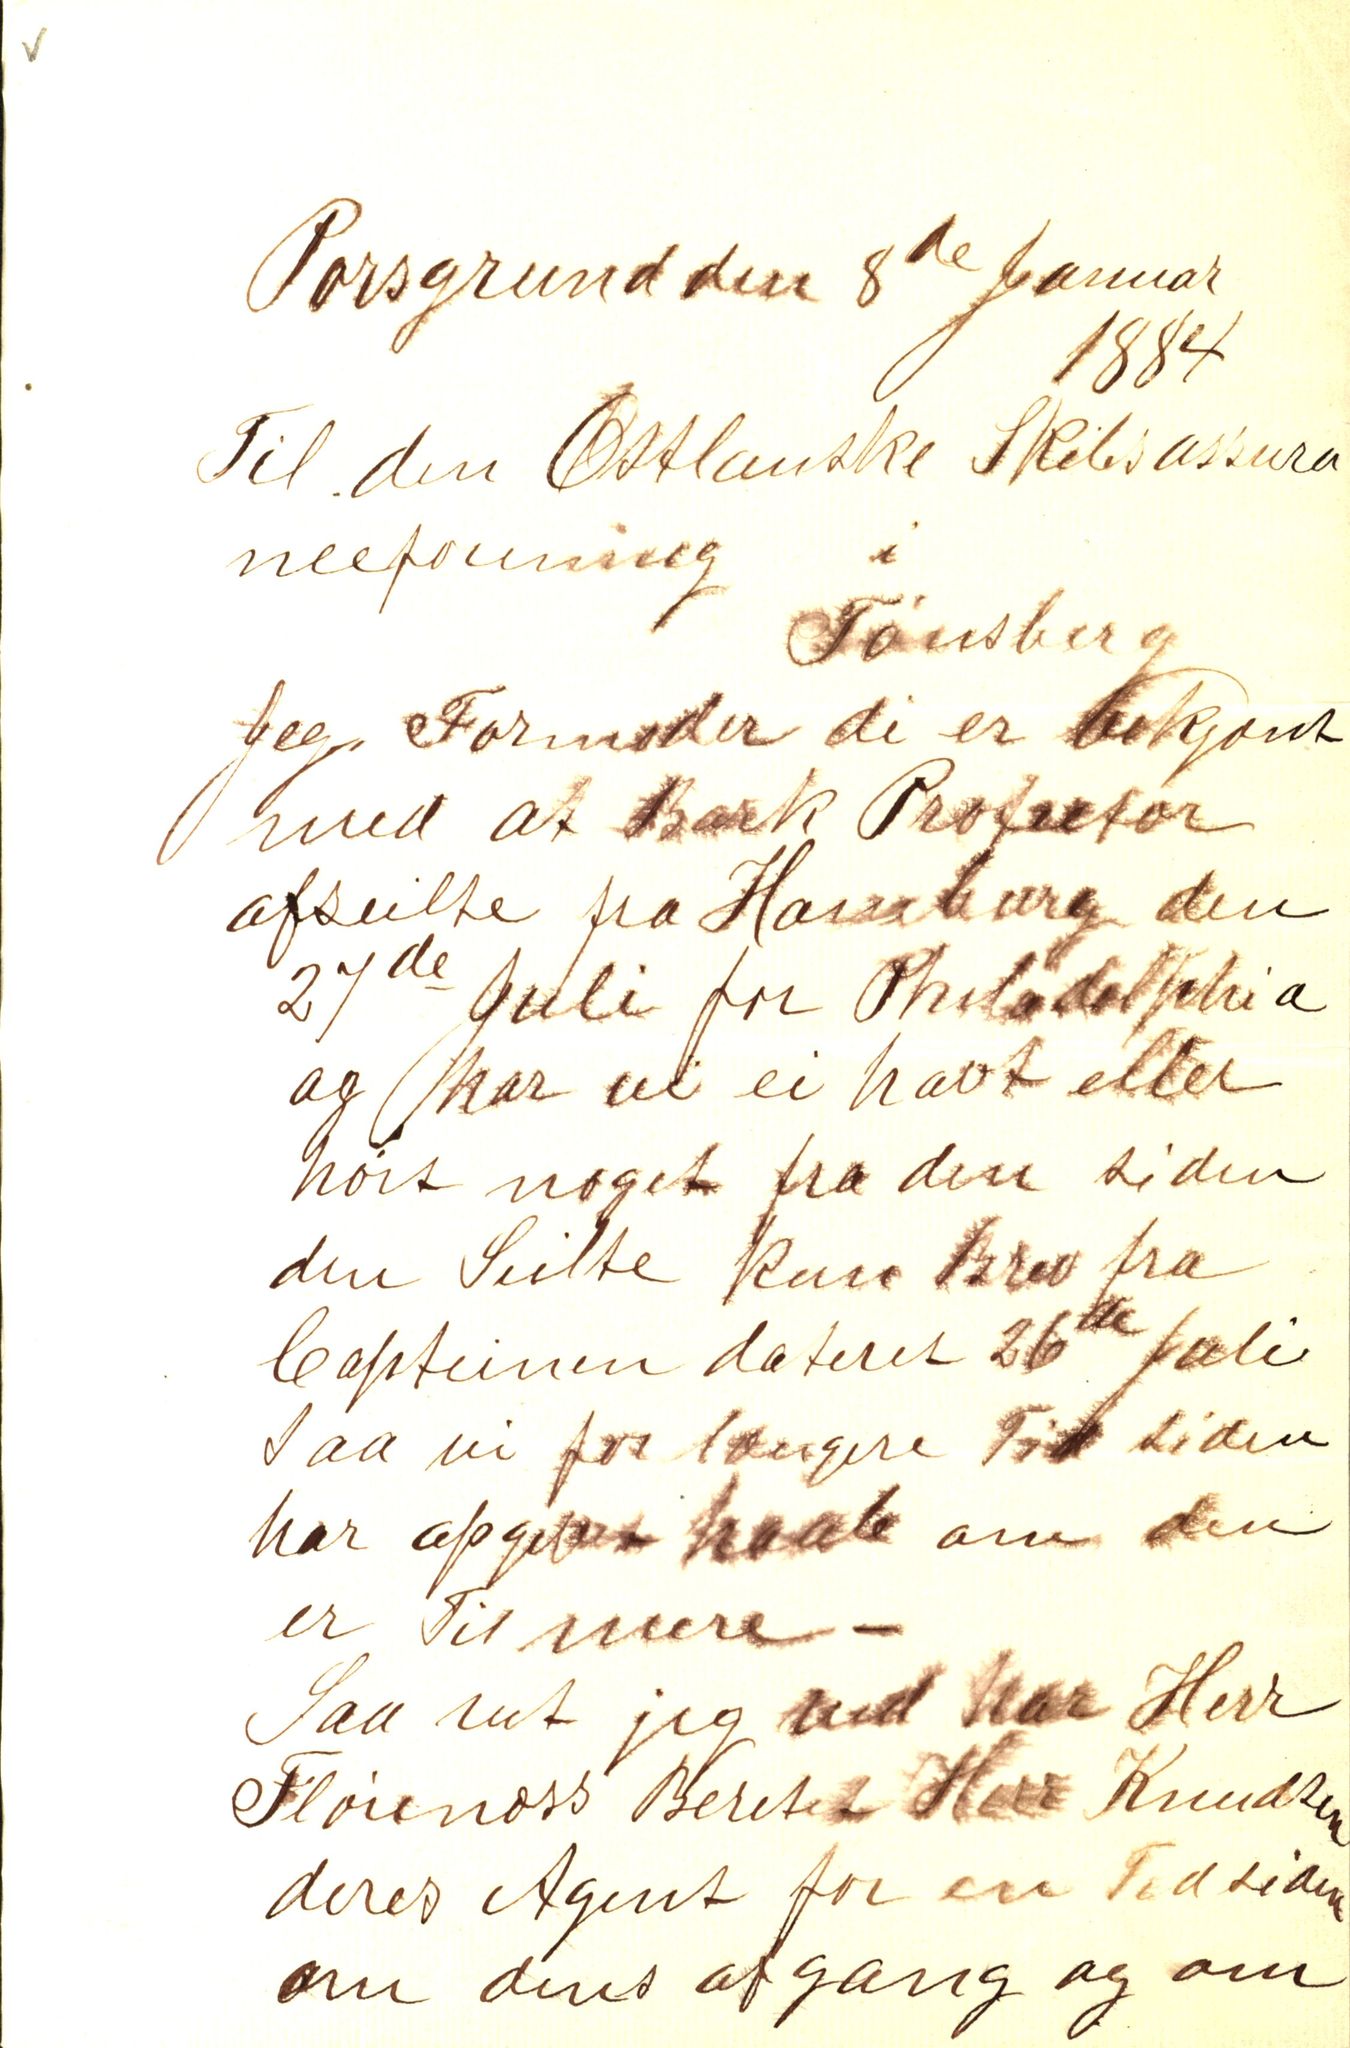 Porsgrund den 8de Januar
1884
Til den Østlanske Skibsassura
nceforening i
Tönsberg
Jeg Formoder di er bekjont
med at Bark Profetor
afseilte fra Hamburg den
27de Juli for Philadelphia
og har vi ei havt eller
hört noget fra den siden
den Seilte kun Brev fra
Capteinen dateret 26de Juli
saa vi for længere Tid siden
har opgivet haab om den
er Til mere —
Saa vit jeg ved har Herr
Flöienæss Berettet Herr Knudsen
deres Agent for en Tid siden
om dens afgang og om